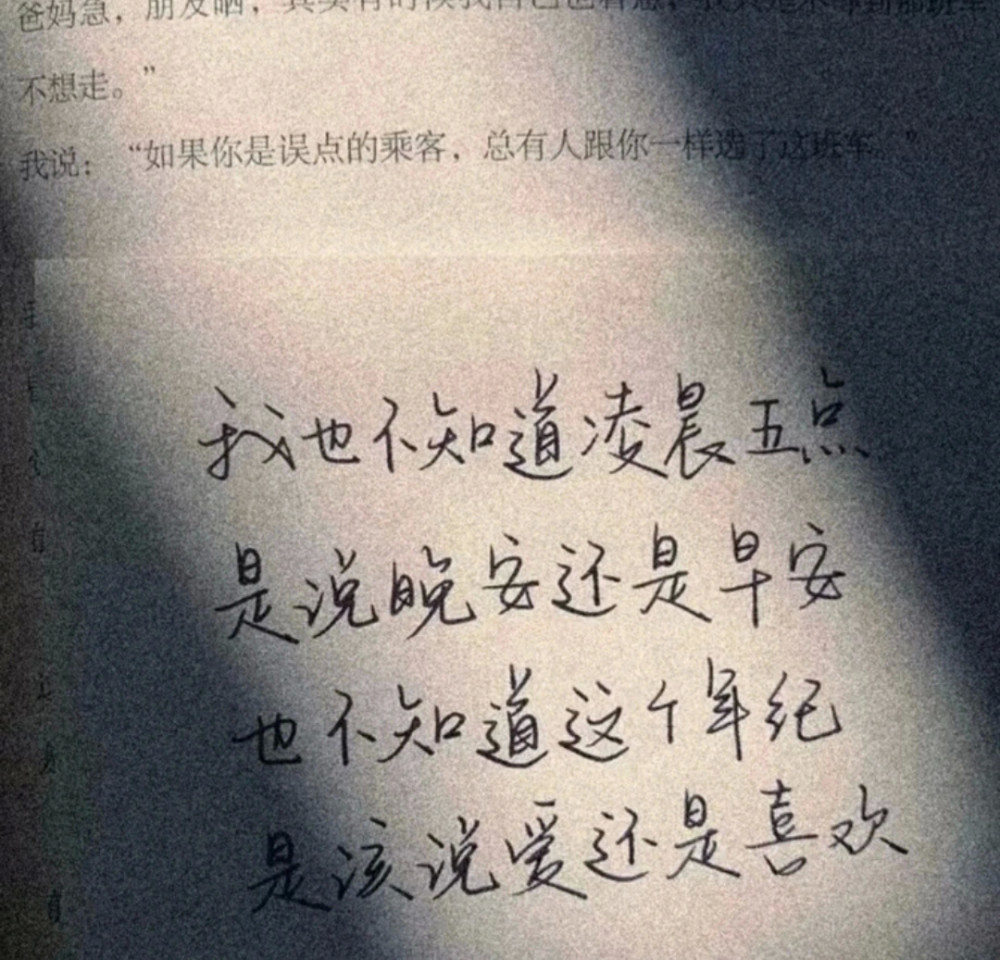 爸妈急，朋友晒，其实有的
不想走。”
我说：“如果你是误点的乘客，总有人跟你一样选了这班车。”
我也不知道凌晨五点
是说晚安还是早安
也不知道这个年纪
是该说爱还是喜欢